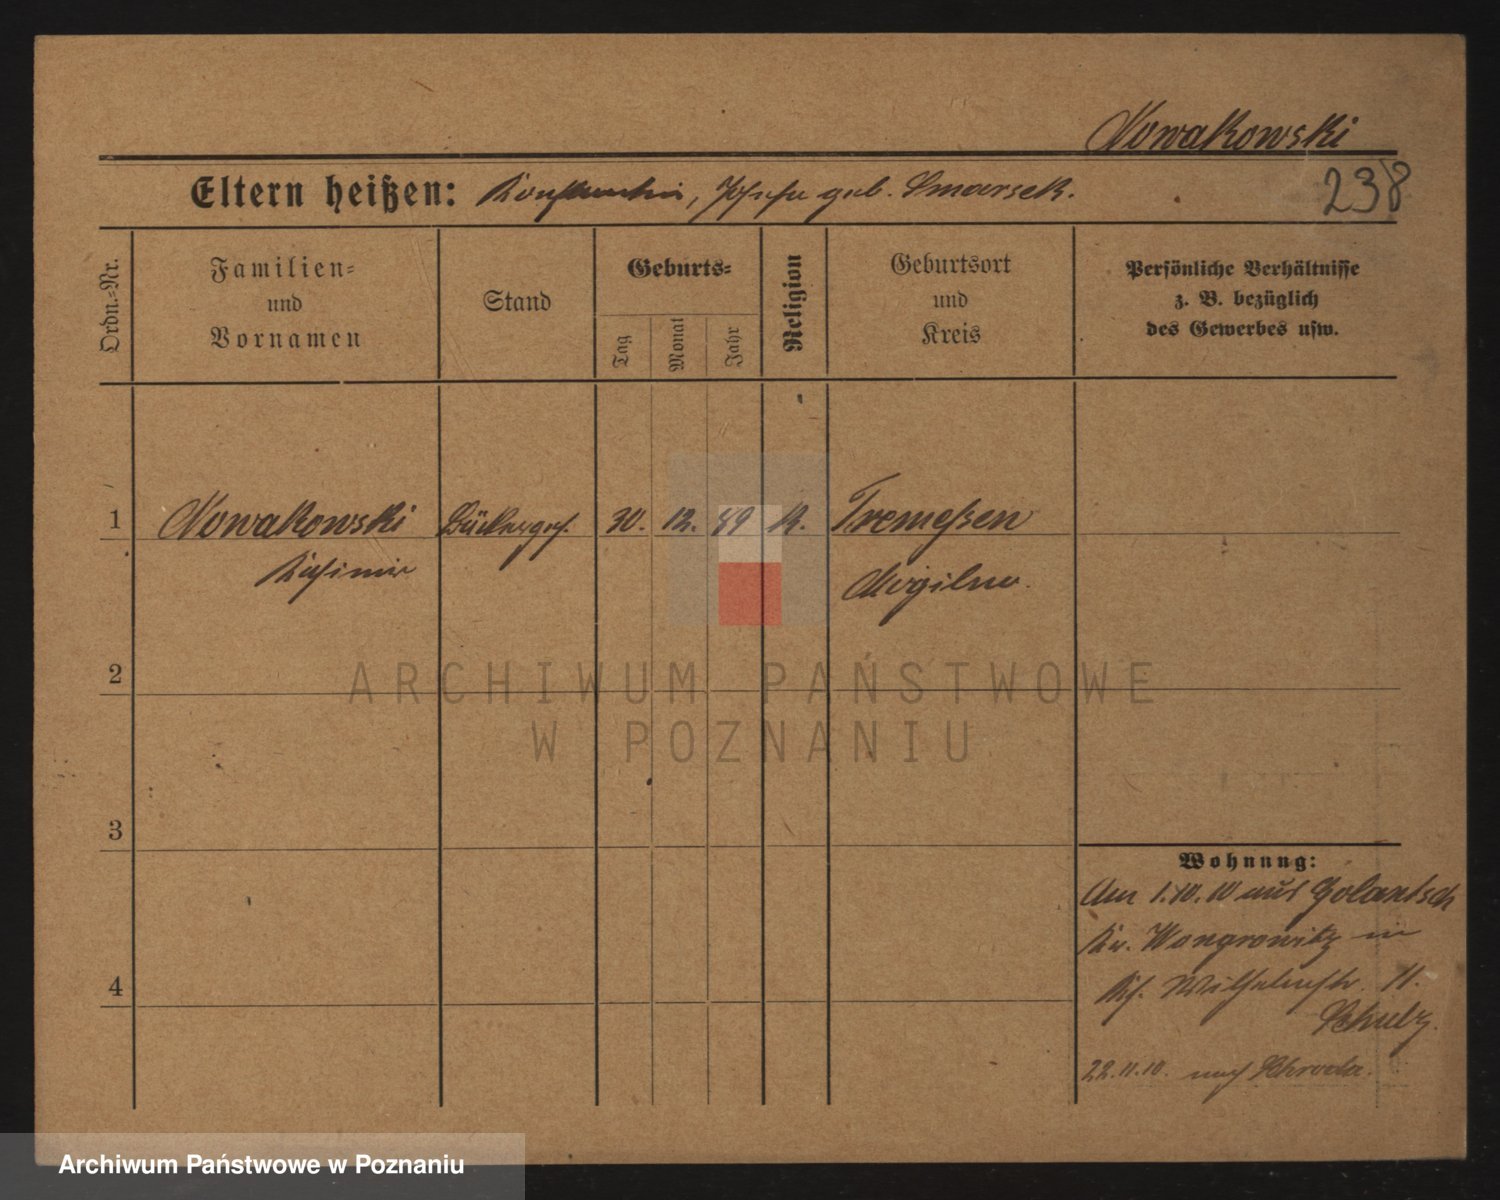 Nowakowski
Eltern heißen: Konstantin, Josefa geb. Smarsek.
238
Ordn.-Nr.
Familien-
und
Vornamen
Stand
Geburts-
Tag
Monat
Jahr
Religion
Geburtsort
und
Kreis
Persönliche Verhältnisse
z. B. bezüglich
des Gewerbes usw.
1 Nowakowski Bäckerges. 30. 12. 89 K. Tremeßen
Kasimir Mogilno.
2
3
4
Wohnung:
Am 1.10.10 aus Golantsch
Kr. Wongrowitz in
Wilhelmstr. 11.
Schulz.
22.11.10. nach Schroda.
ARCHIWUM PAŃSTWOWE
W POZNANIU
Archiwum Państwowe w Poznaniu